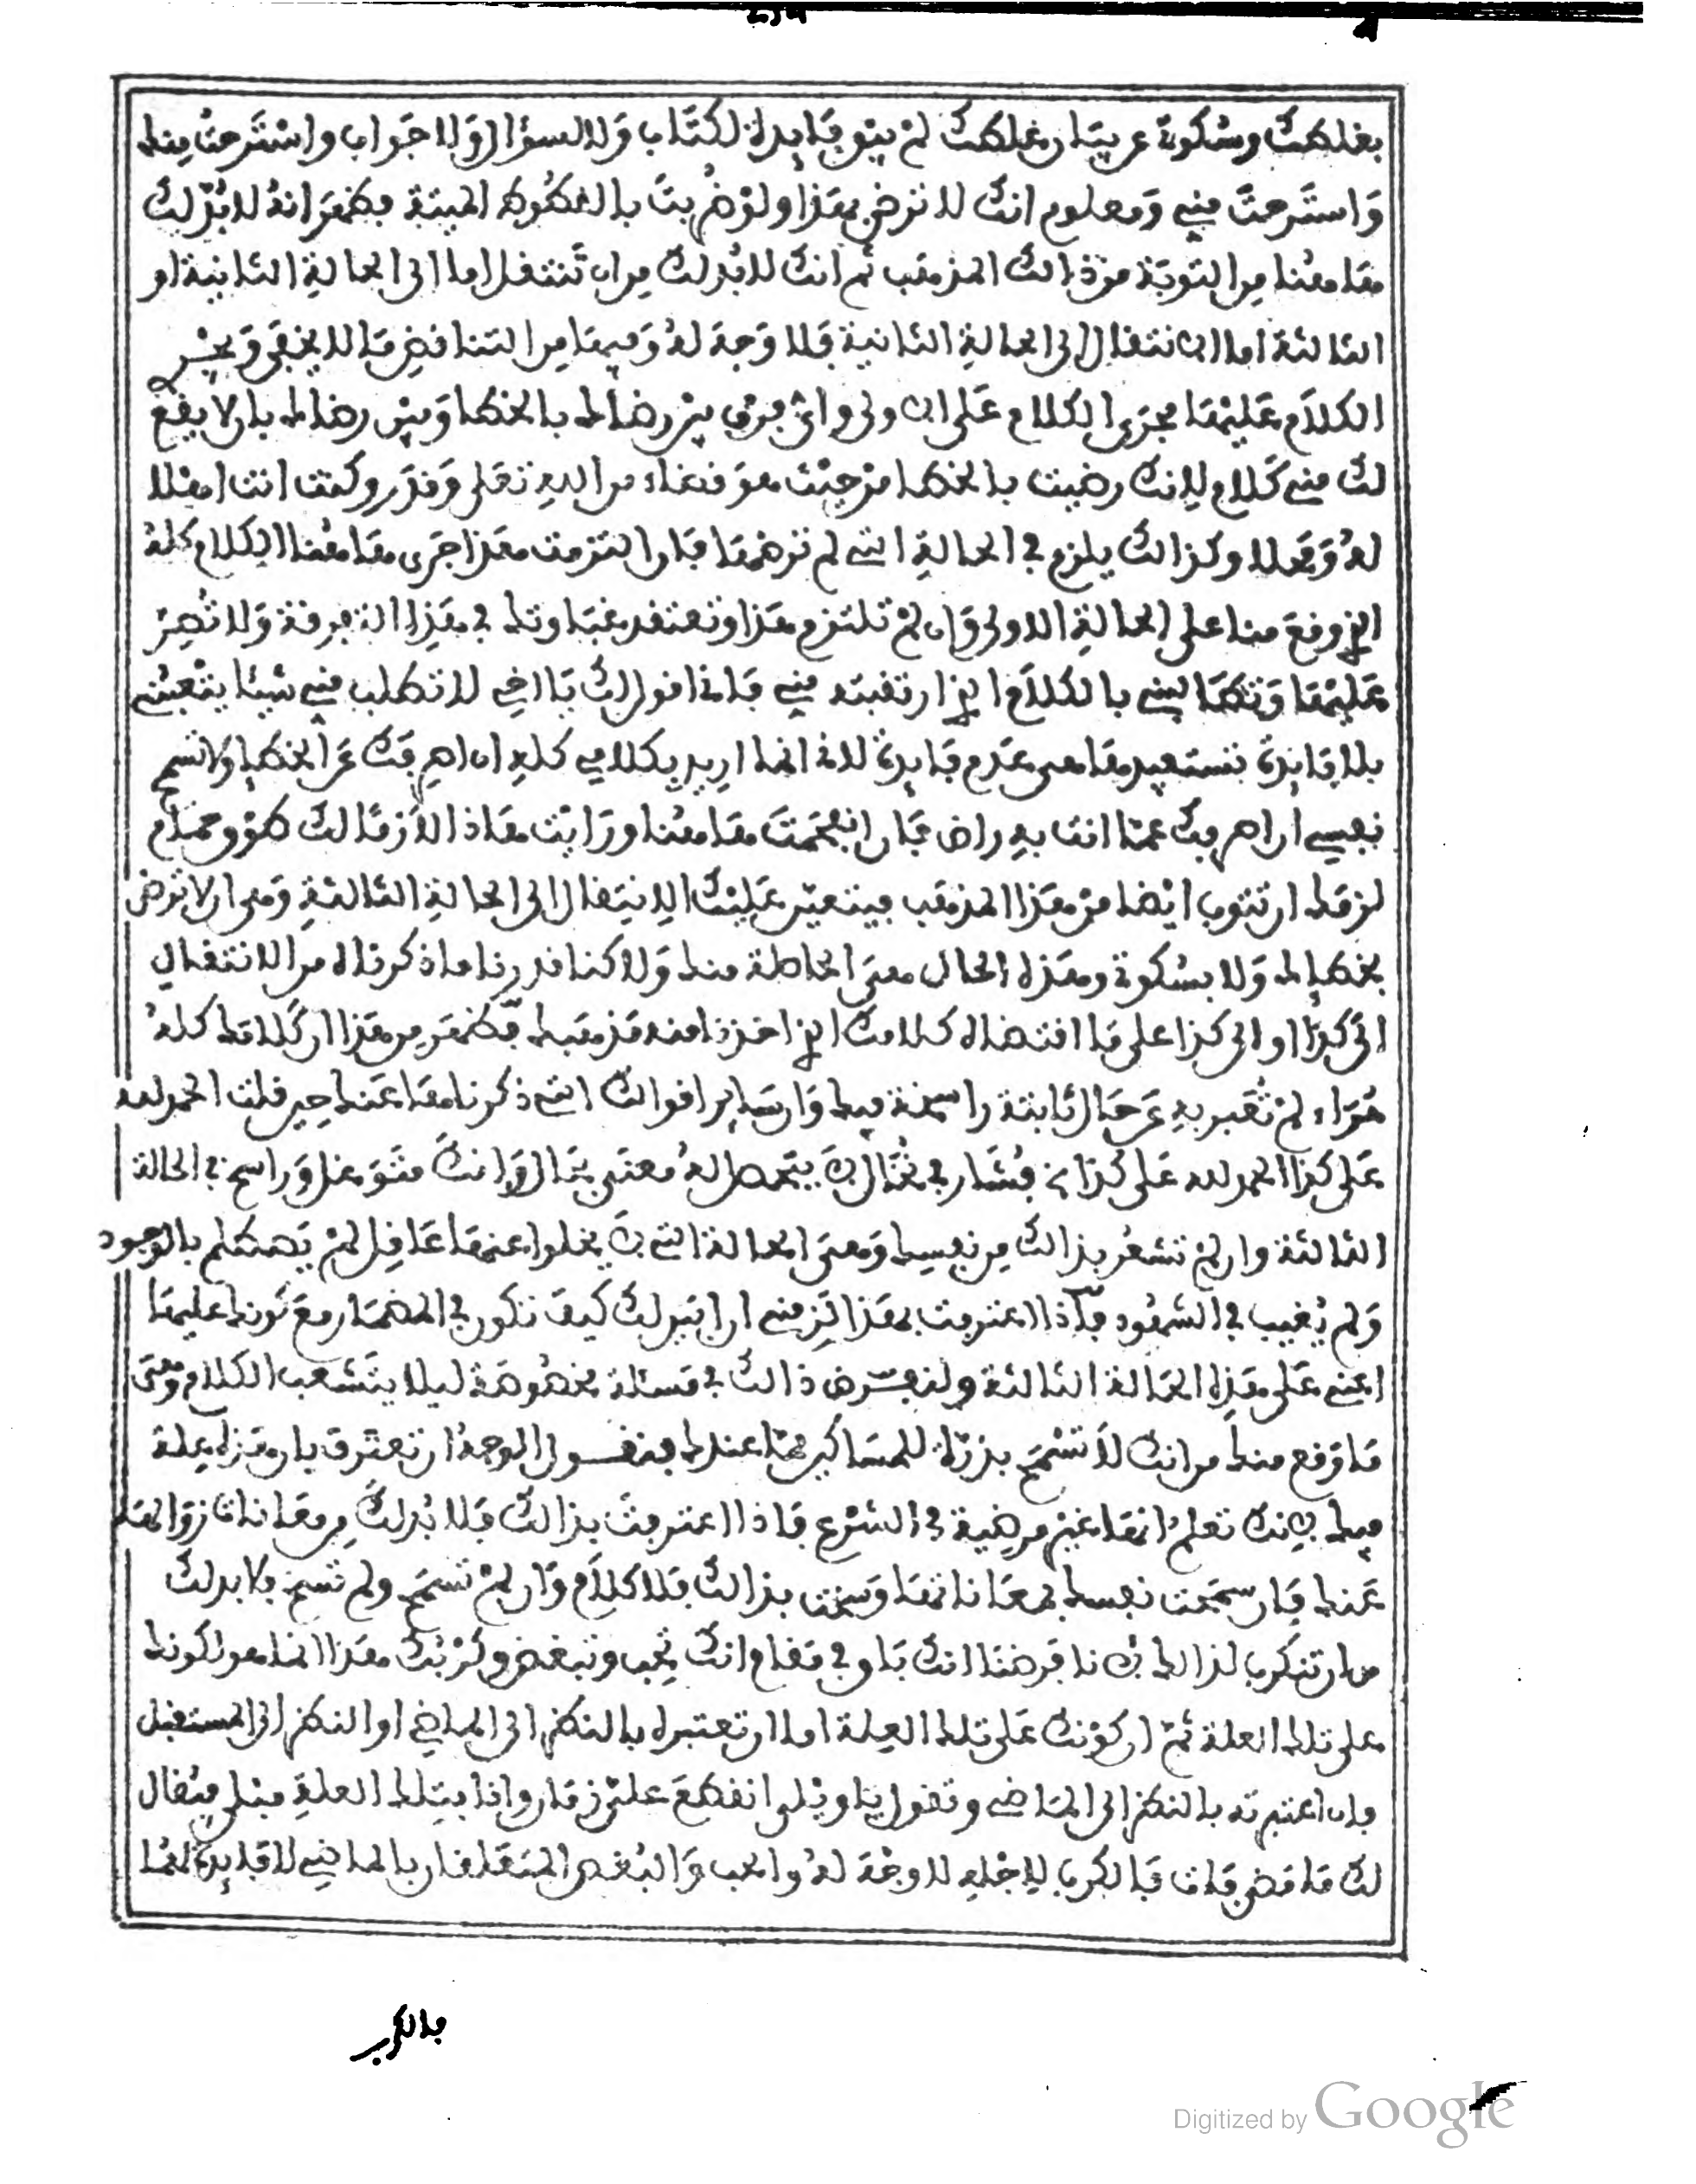 بغلطك وسكوتي عن بيان غلطك لم يبق فايدة لكتاب ولا لسؤال ولا جواب واسترحت منك
واسترحت مني ومعلوم انك لا ترضى بهذا ولو ضربت بالعكوك المبتة فظهر انه لا بد لك
هاهنا من التوبة من ذالك المذهب ثم انك لا بد لك من ان تنتقل اما الى الحالة الثانية او
الثالثة اما الانتقال الى الحالة الثانية فلا وجه له وفيها من التناقض ما لا يخفى ويجري
الكلام عليها مجرى الكلام على الاولى واي فرق بين رضاك بالخطا وبين رضاك بان لا يقع
لك مني كلام لانك رضيت بالخطا من حيث هو قضاء من الله تعلى وقدر وكنت انت اهلا
له ومحلا وكذالك يلزم في الحالة التي لم ترضها فان التزمت هذا جرى هاهنا الكلام كله
الذي وقع منا على الحالة الاولى وان لم تلتزم هذا وتعتقد غباوتك في هذه التفرقة ولا تصر
عليها وتطالبني بالكلام الذي ارتقبته مني فانا اقول لك يا اخي لا تطلب مني شيئا يتعبني
بلا فايدة تستفيدها معى عدم فايدة لانى انما اريد بكلامي كله ان اصرفك عن الخطا ولا تسمح
نفسي ان اصرفك عما انت به راض فان انفحمت هاهنا ورايت هاذا لازما لك طوق حمام
لزمك ان تتوب ايضا من هذا المذهب فيتعين عليك الانتقال الى الحالة الثالثة وهى ان لا ترضى
بخطاك ولا بسكوتي وهذه الحال هى الحاصلة منك ولاكنا قدرنا ما ذكرناه من الانتقال
الى كذا او الى كذا على ما اقتضاه كلامك الذي اخذنا منه مذهبك فظهر من هذا ان كلامك كله
هراء لم تعبر به عن حال ثابتة راسخة فيك وان سائر اقوالك التي ذكرناها عنك حين قلت الحمد لله
على كذا الحمد لله على كذا فشار في خثار لا يتحصل له معنى بحال وانك متوغل وراسخ في الحالة
الثالثة وان لم تشعر بذالك من نفسك وهى الحالة التي لا يخلوا عنها عاقل لم يصطلم بالوجود
ولم يغيب في الشهود فاذا اعترفت بهذا لزمني ان ابين لك كيف تكون في المضمار مع كونك عليها
اعني على هذه الحالة الثالثة ولنفرض ذالك في مسئلة مخصوصة ليلا يتشعب الكلام وهى
ما وقع منك من انك لا تسمح بذرة للمساكين مما عندك فنقول الوجه ان تعترف بان هذه علة
فيك لانك تعلم انها غير مرضية في الشرع فاذا اعترفت بذالك فلا بد لك من معاناة زوالها
عنك فان سمحت نفسك بمعاناتها وسخت بذالك فلا كلام وان لم تسمح ولم تسخ فلا بد لك
من ان تنكرب لذالك لانا فرضنا انك باق في مقام انك تحب وتبغض وكربك هذا انما هو لكونك
على تلك العلة ثم ان كونك على تلك العلة اما ان تعتبره بالنظر الى الماضي او النظر الى المستقبل
فان اعتبرته بالنظر الى الماضي وتقول يا ويلى انقطع علي زمان وانا بتلك العلة مبتلى فيقال
لك ما مضى فات فالكرب لاجله لا وجه له والحب والبغض المتعلقان بالماضي لا فايدة لهما
فالكرب
Digitized by Google